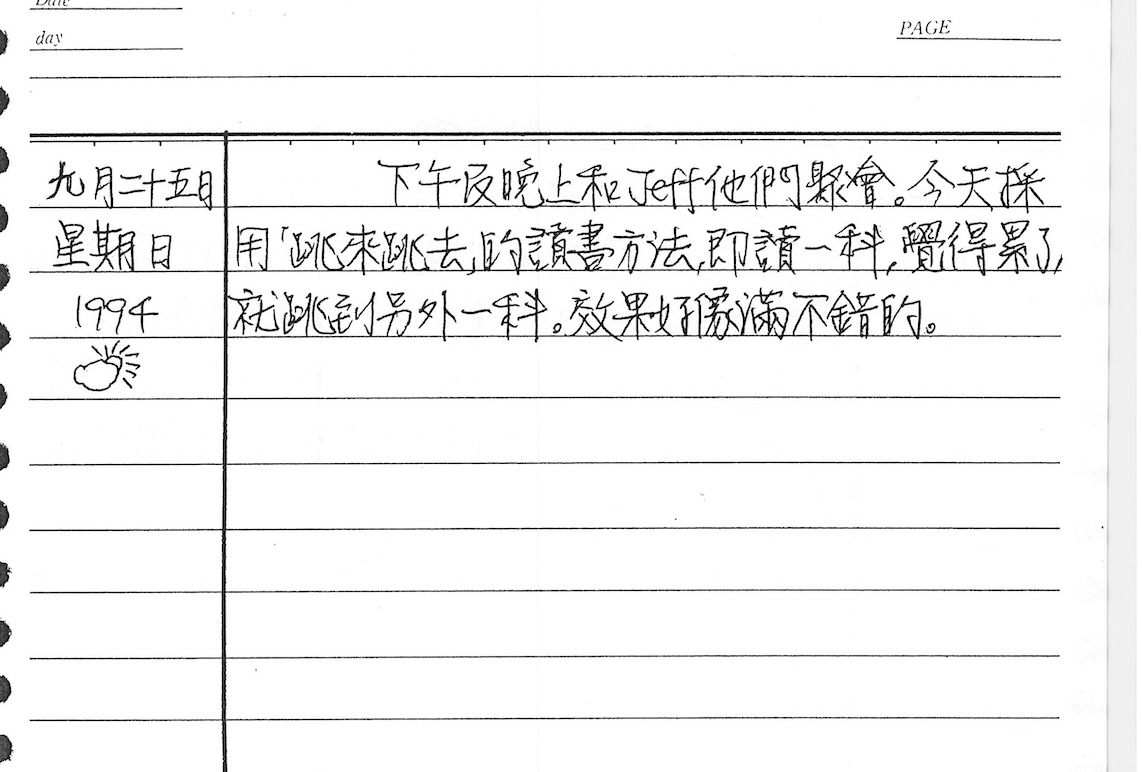 Date
day
PAGE
九月二十五日
星期日
1994
下午及晚上和Jeff他們聚會。今天採
用「跳來跳去」的讀書方法,即讀一科,覺得累了,
就跳到另外一科。效果好像滿不錯的。